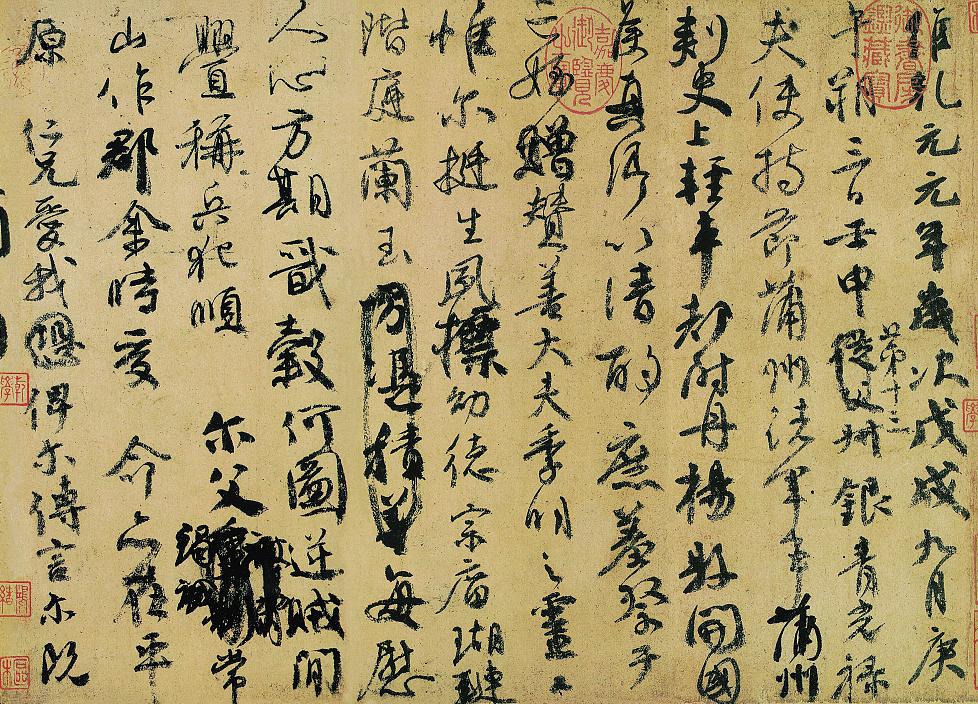 維乾元元年歲次戊戌九月庚
午朔三日壬申第十三從父銀青光祿
夫使持節蒲州諸軍事蒲州
刺史上輕車都尉丹楊縣開國
侯真卿以清酌庶羞祭于
亡姪贈贊善大夫季明之靈曰
惟尔挺生夙標幼德宗廟瑚璉
階庭蘭玉方憑積善每慰
人心方期戩穀何圖逆賊閒
釁稱兵犯順尔父竭誠常
山作郡余時受命亦在平
原仁兄愛我恐俾尔傳言尔既
嘉慶御覽之寶